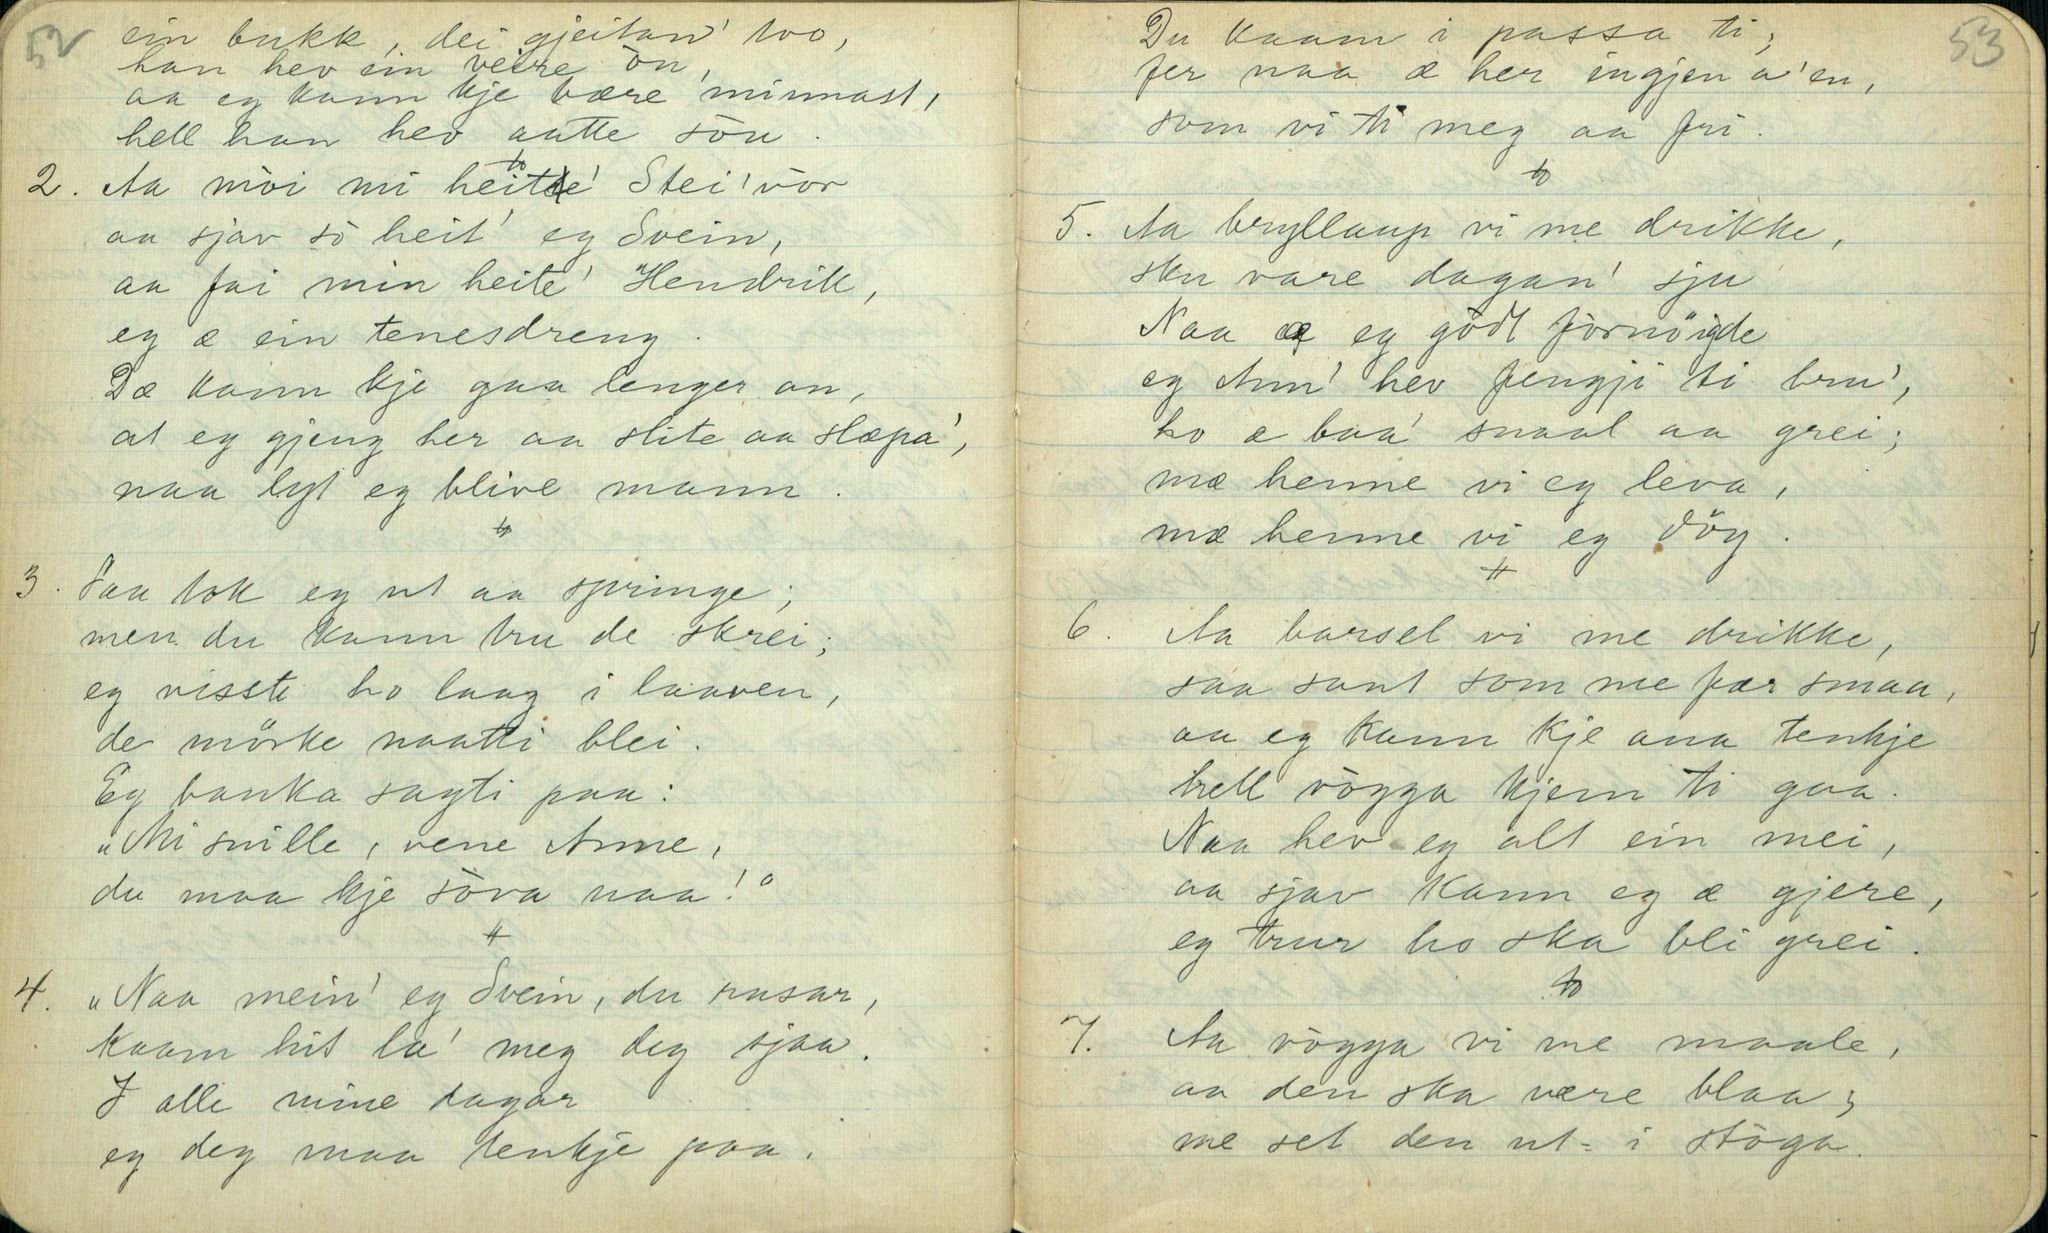 52
ein bukk, dei gjeitan' tvo,
han hev ein veire òn,
aa eg kann kje bære minnast,
hell han hev aatte sòn.
2. Aa mòi mi heitte' Stei'vòr
aa sjav sò heit' eg Svein,
aa fai min heite' Hendrik,
eg æ ein tenesdreng.
Dæ kann kje gaa lenger an,
at eg gjeng her aa slite aa slæpa',
naa lyt eg blive mann.
3. Saa tok eg ut aa springe;
men du kann tru de skrei;
eg visste ho laag i laaven,
de mörke naatti blei.
Eg banka sagti paa:
„Mi snille, vene Anne,
du maa kje sòva naa!"
4. „Naa mein' eg Svein, du rasar,
kaam hit la' meg deg sjaa.
I alle mine dagar
eg deg maa tenkje paa.
53
Du kaam i passa ti;
fer naa æ her ingjen a'en,
som vi ti meg aa fri.
5. Aa bryllaup vi me drikke,
sku vare dagan' sju
Naa æ eg gòdt fòrnöigde
eg Ann' hev fengji ti bru',
ho æ baa' snaal aa grei;
mæ henne vi eg leva,
mæ henne vi eg döy.
6. Aa barsel vi me drikke,
saa sant som me fær smaa,
aa eg kann kje ana tenkje
hell vògga kjem ti gaa.
Naa hev eg alt ein mei,
aa sjav kann eg æ gjere,
eg trur ho ska bli grei.
7. Aa vògga vi me maale,
aa den ska være blaa;
me set den ut i stòga.